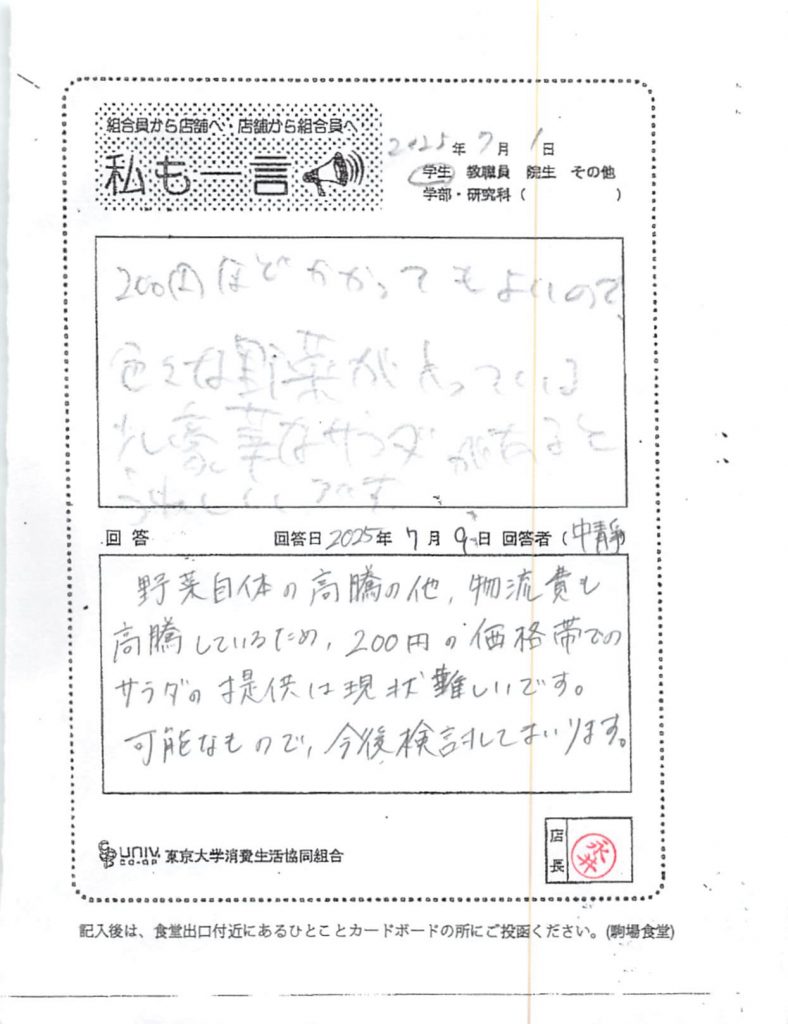 組合員から店舗へ・店舗から組合員へ
私も一言
2025年7月1日
学生 教職員 院生 その他
学部・研究科( )
200円ほどかかってもよいので
色々な野菜が入っている
豪華なサラダがあると
うれしいです
回答 回答日2025年7月9日 回答者(中靜
野菜自体の高騰の他、物流費も
高騰しているため、200円の価格帯での
サラダの提供は現状難しいです。
可能なもので、今後検討してまいります。
UNIV. CO-OP 東京大学消費生活協同組合
店長
記入後は、食堂出口付近にあるひとことカードボードの所にご投函ください。(駒場食堂)